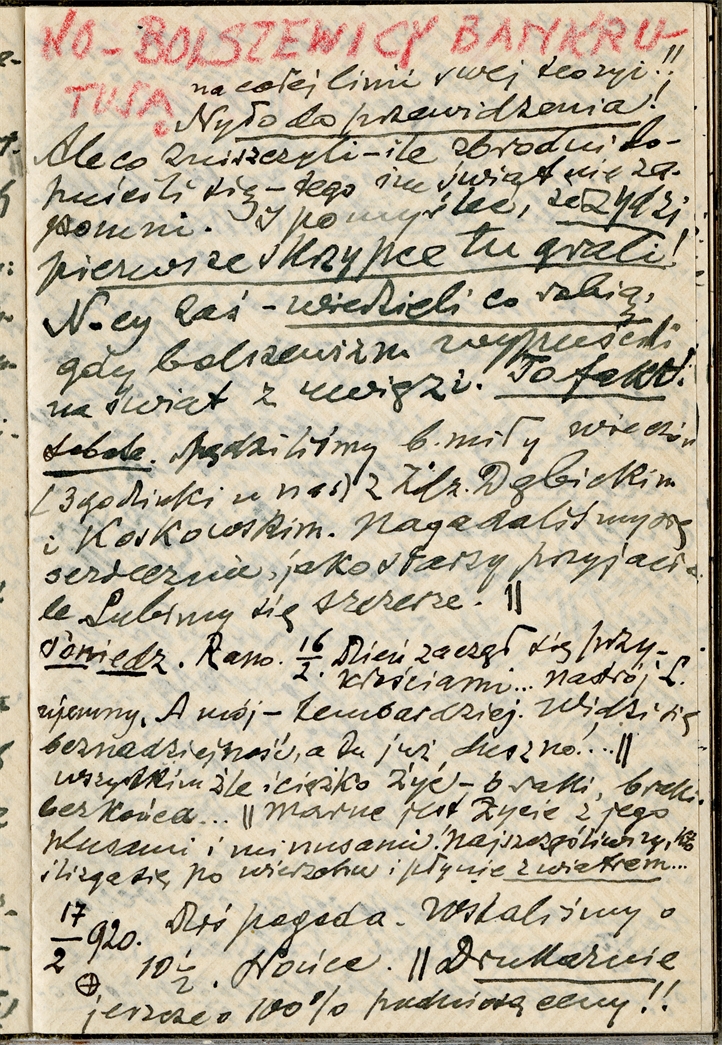 NO - BOLSZEWICY BANKRU-
TUJĄ na całej linii swej teoryi!!
Było do przewidzenia!
Ale co zniszczyli - ile zbrodni do-
puścili się - tego im świat nie za-
pomni. I pomyśleć, że Żydzi
pierwsze skrzypce tu grali!
N-cy zaś - wiedzieli co robią,
gdy bolszewizm wypuścili
na świat z uwięzi. To fakt!
Sobota. Spędziliśmy b. miły wieczór
(3 godzinki u nas) z Zdz. Dębickim
i Koskowskim. Nagadaliśmy się
serdecznie, jako starzy przyjacie-
le. Lubimy się szczerze. ||
Poniedz. Rano. 16/2. Dzień zaczął się przy-
krościami... nastrój L.
ujemny. A mój - tembardziej. Widzi się
beznadziejność, a tu już duszno... ||
wszystkim źle i ciężko żyć - braki, braki
bez końca... || Marne jest życie z jego
plusami i minusami. Najszczęśliwszy, kto
ślizga się po wierzchu i płynie z wiatrem...
17/2 920. Dziś pogoda. Wstaliśmy o
10 1/2. Słońce. || Drukarnie
jeszcze o 100% podniosą ceny!!